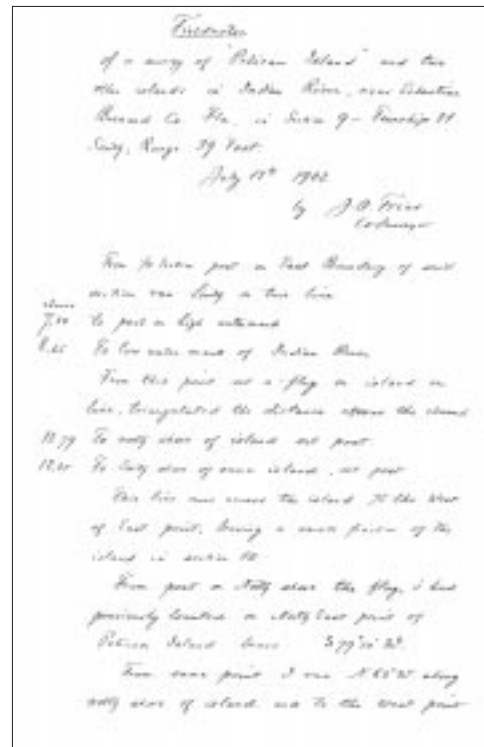 Fieldnotes
of a survey of "Pelican Island" and two
other islands in Indian River, near Sebastian
Brevard Co. Fla., in Section 9 - Township 31
South, Range 39 East
July 1902
by J.O. Fries
From post on East Boundary of said
section run South on true line
chains
To post on high
To low water mark of Indian River
From this point set a flag on island on
line, triangulated the distance across the channel
To shore of island set post
To shore of same island, set post
This line runs across the island to the West
of East point, leaving a small portion of the
island in section 10.
From post on shore the flag, I had
previously located on East point of
Pelican Island bears S 79° W.
From same point I run N 65° W along
shore of island and to the West point